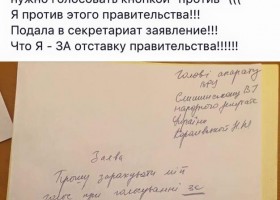 нужно голосовать кнопкой "против" (((
Я против этого правительства!!!
Подала в секретариат заявление!!!
Что Я - ЗА отставку правительства!!!!!!
Голові апарату
ВРУ
народного депутата
України
Заява
Прошу зарахувати мій
голос при голосуванні за